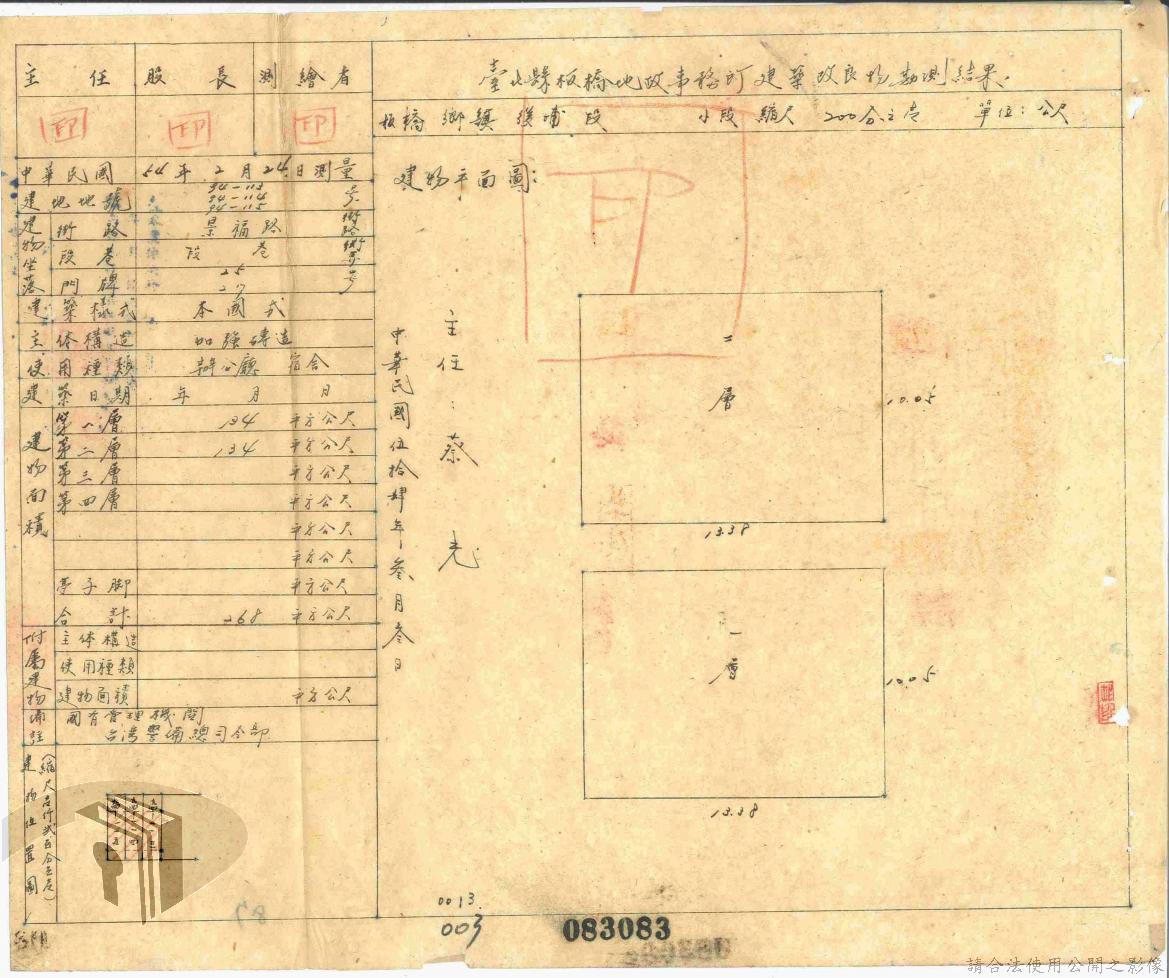 臺北縣板橋地政事務所建築改良物勘測結果:
板橋 鄉鎮 後埔 段 小段 縮尺 200分之壹 單位:公尺
主任 股長 測繪者
印 印 印
中華民國 54年 2月24日測量
建地地號 94-113 94-114 94-115 號
建物坐落
街路 景福路 街路
段巷 段 巷
門牌 25 27 號
建築樣式 本國式
主体構造 加強磚造
使用種類 辦公廳 宿舍
建築日期 年 月 日
建物面積
第一層 134 平方公尺
第二層 134 平方公尺
第三層 平方公尺
第四層 平方公尺
平方公尺
平方公尺
亭子脚 平方公尺
合計 268 平方公尺
附属建物
主体構造
使用種類
建物面積 平方公尺
國有管理機関
台湾警備總司令部
建物位置圖
建物平面圖:
印
主任:蔡
中華民國伍拾肆年叁月叁日
二層
10.05
13.38
一層
10.05
13.38
0013
003
083083
請合法使用公開之影像